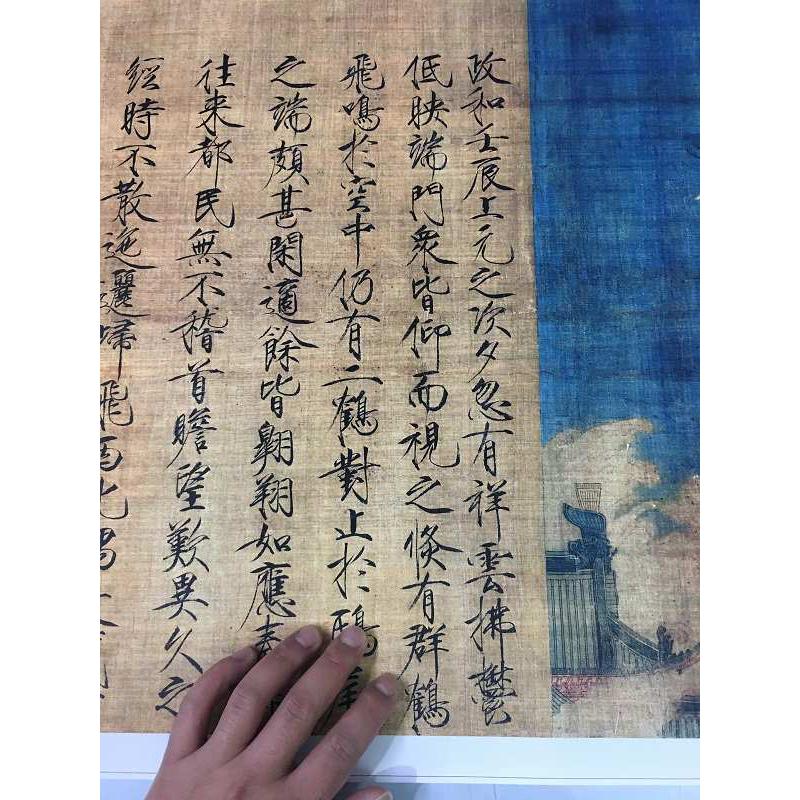 政和壬辰上元之次夕忽有祥雲拂鬱
低映端門衆皆仰而視之倏有群鶴
飛鳴於空中仍有二鶴對止於鴟尾
之端頗甚閑適餘皆翱翔如應奏
往来都民無不稽首瞻望歎異久之
經時不散迤邐歸飛西北隅散